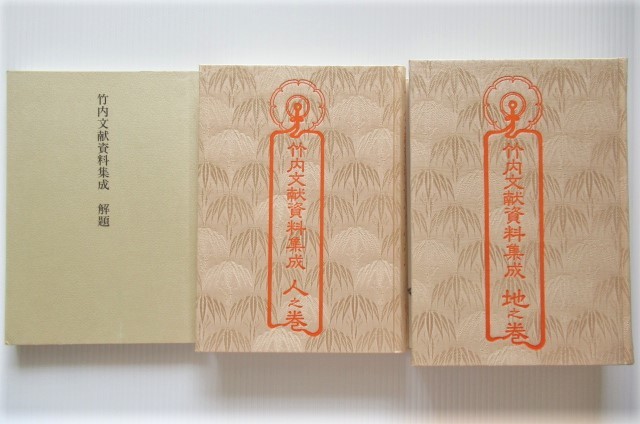 竹内文献資料集成　解題
竹内文献資料集成　人之巻
竹内文献資料集成　地之巻